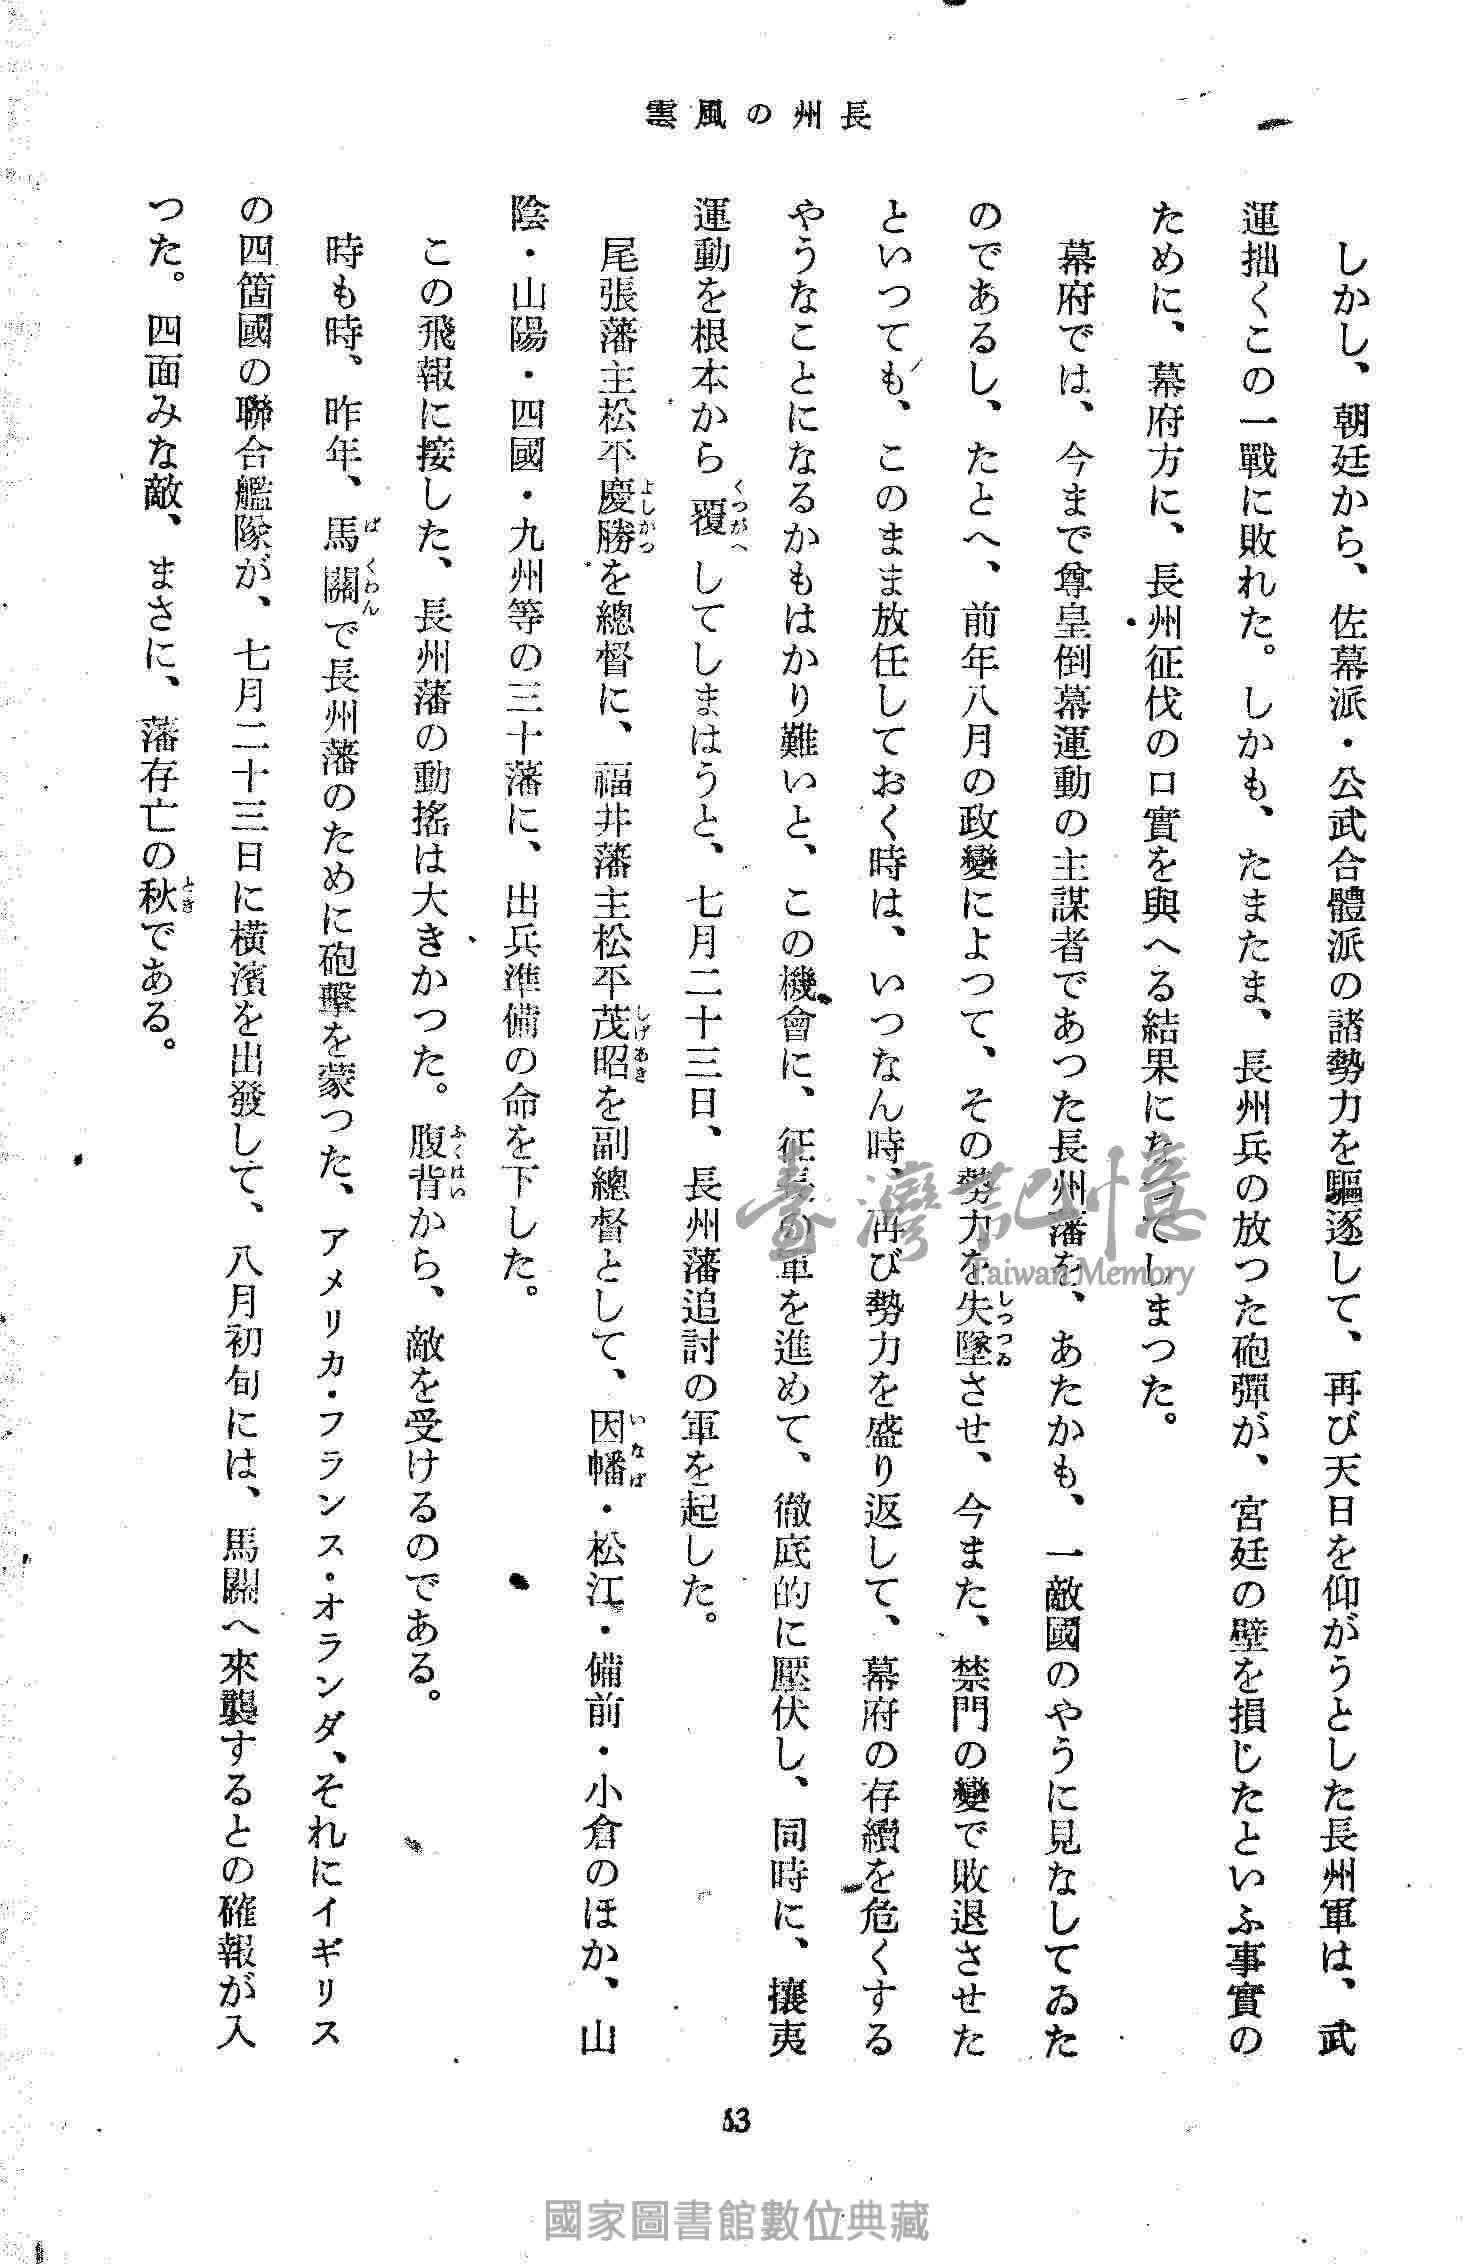 雲風の州長
しかし、朝廷から、佐幕派・公武合體派の諸勢力を驅逐して、再び天日を仰がうとした長州軍は、武
運拙くこの一戰に敗れた。しかも、たまたま、長州兵の放つた砲彈が、宮廷の壁を損じたといふ事實の
ために、幕府方に、長州征伐の口實を與へる結果になつてしまつた。
幕府では、今まで尊皇倒幕運動の主謀者であつた長州藩を、あたかも、一敵國のやうに見なしてゐた
のであるし、たとへ、前年八月の政變によつて、その勢力を失墜させ、今また、禁門の變で敗退させた
しつつゐ
といつても、このまま放任しておく時は、いつなん時、再び勢力を盛り返して、幕府の存續を危くする
やうなことになるかもはかり難いと、この機會に、征長の軍を進めて、徹底的に壓伏し、同時に、攘夷
運動を根本から覆してしまはうと、七月二十三日、長州藩追討の軍を起した。
くつがへ
尾張藩主松平慶勝を總督に、福井藩主松平茂昭を副總督として、因幡・松江・備前・小倉のほか、山
よしかつ
しげあき
いなば
陰・山陽・四國・九州等の三十藩に、出兵準備の命を下した。
この飛報に接した、長州藩の動搖は大きかつた。腹背から、敵を受けるのである。
ふくはい
時も時、昨年、馬關で長州藩のために砲擊を蒙つた、アメリカ・フランス・オランダ、それにイギリス
ばくわん
の四箇國の聯合艦隊が、七月二十三日に橫濱を出發して、八月初旬には、馬關へ來襲するとの確報が入
つた。四面みな敵、まさに、藩存亡の秋である。
とき
臺灣記憶
Taiwan Memory
63
國家圖書館數位典藏